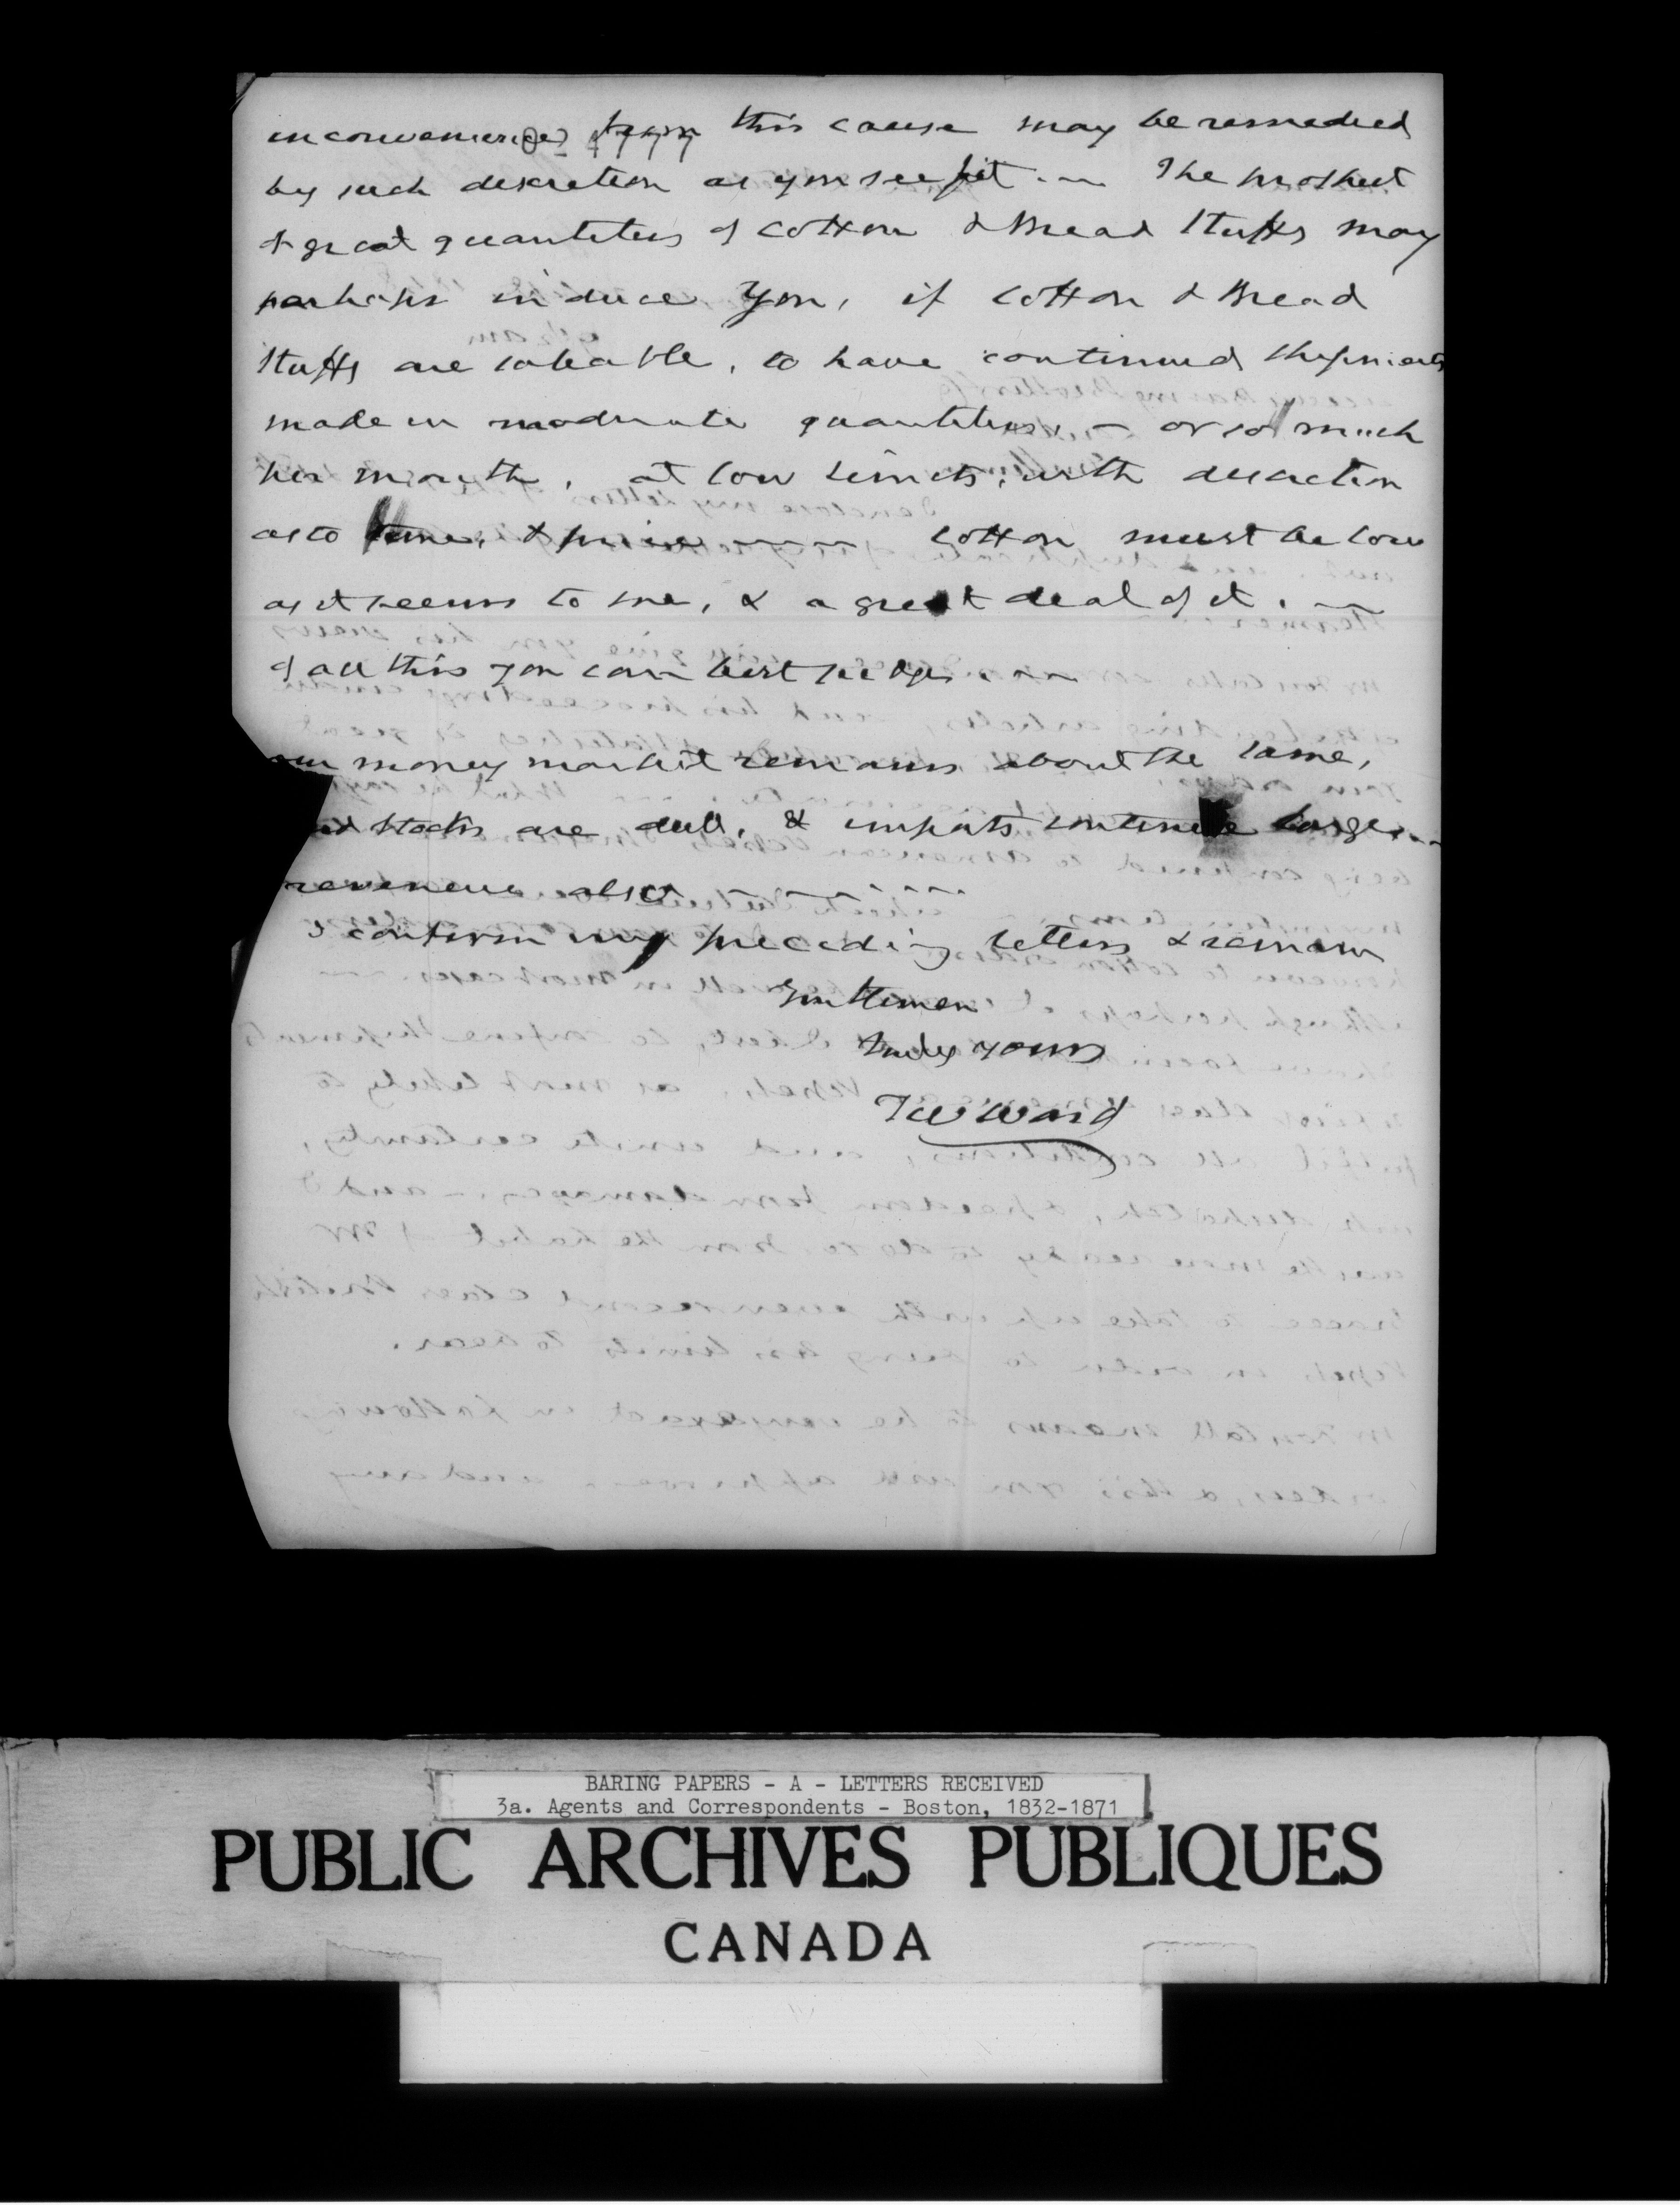 inconveniences from this cause may be remedied
by such discretion as you see fit. — The prospect
of great quantities of Cotton & Bread Stuffs may
perhaps induce you, if Cotton & Bread
Stuffs are saleable, to have continued shipments
made in moderate quantities, — or so much
per month, at low limits, with discretion
as to time, & price — — — Cotton must be low
as it seems to me, & a great deal of it. —
of all this you can best judge. —
our money market remains about the same,
and Stocks are dull, & imports continue large. —
revenue also — — — —
I confirm my preceding letters & remain
Gentlemen
Truly yours
TW Ward
BARING PAPERS - A - LETTERS RECEIVED
3a. Agents and Correspondents - Boston, 1832-1871
PUBLIC ARCHIVES PUBLIQUES
CANADA